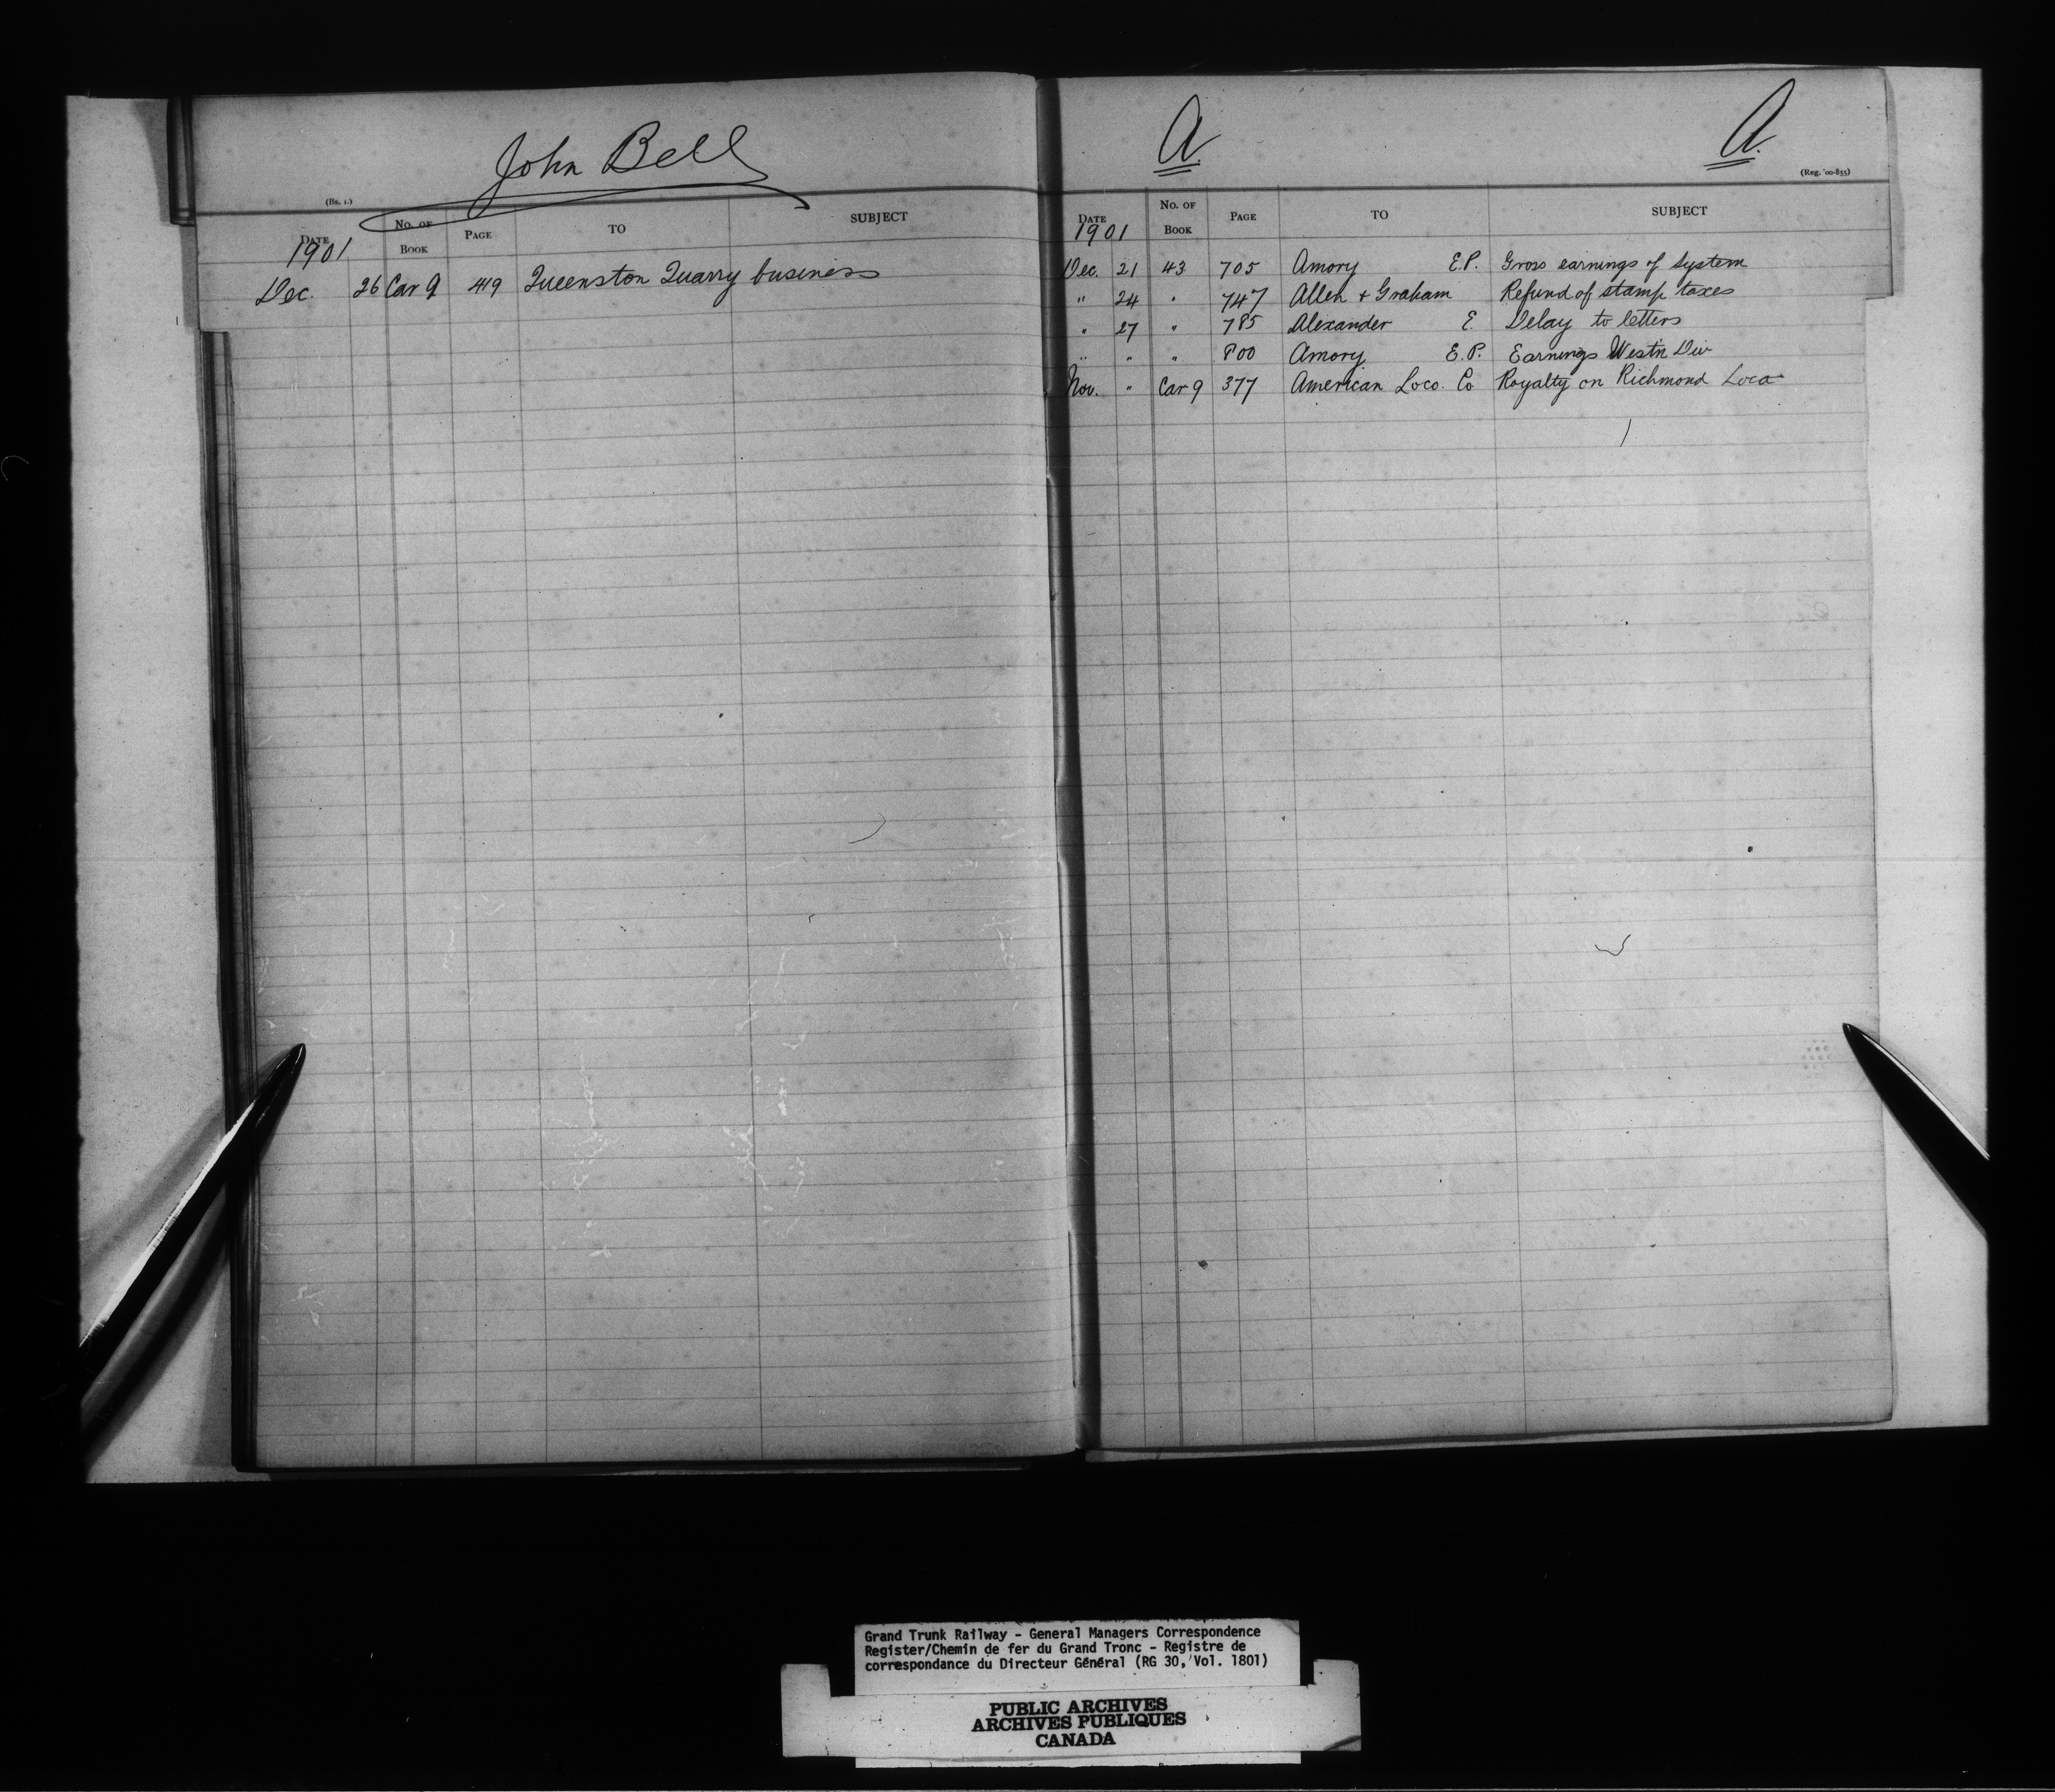 John Bell
(Bs. 1.)
DATE No. OF BOOK PAGE TO SUBJECT
1901
Dec. 26 Car 9 419 Queenston Quarry business
A. A.
(Reg. '00-855)
DATE No. OF BOOK PAGE TO SUBJECT
1901
Dec. 21 43 705 Amory E.P. Gross earnings of System
" 24 " 747 Allen + Graham Refund of stamp taxes
" 27 " 785 Alexander E. Delay to letters
" " " 800 Amory E.P. Earnings West'n Div
Nov. " Car 9 377 American Loco. Co Royalty on Richmond Loco
Grand Trunk Railway - General Managers Correspondence
Register/Chemin de fer du Grand Tronc - Registre de
correspondance du Directeur Général (RG 30, Vol. 1801)
PUBLIC ARCHIVES
ARCHIVES PUBLIQUES
CANADA